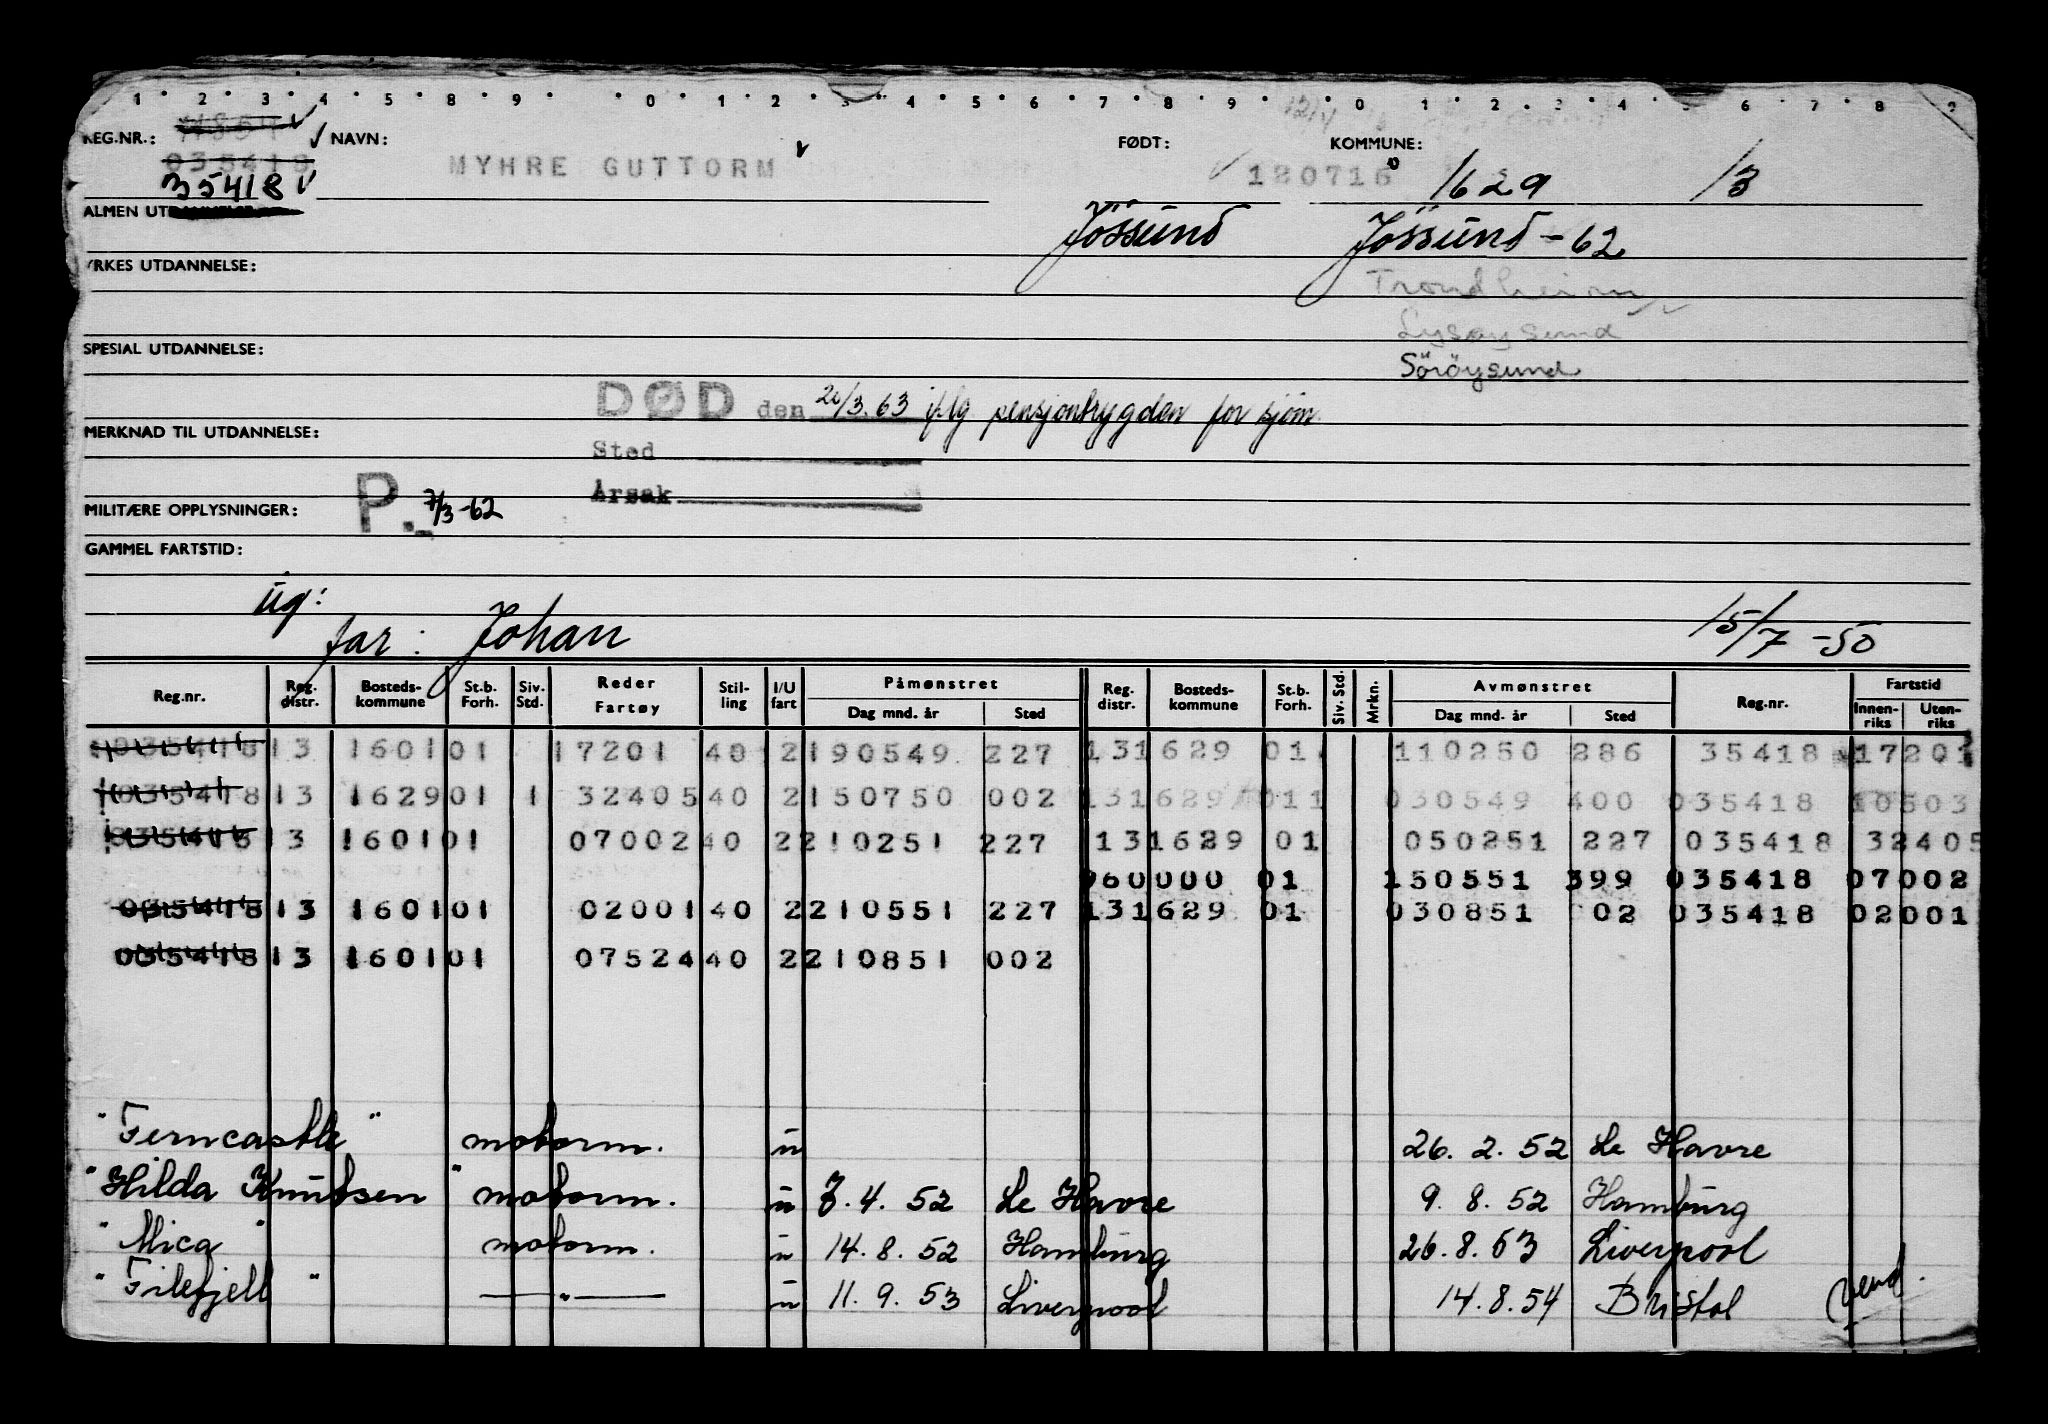 1 2 3 4 5 8 9 0 1 2 3 4 5 6 7 8 9 0 1 2 3 4 5 6 7 8 9
REG.NR.: NAVN: FØDT: KOMMUNE:
035418 MYHRE GUTTORM 180716 1629 13
35418
ALMEN UTDANNELSE: Jössund Jössund - 62
YRKES UTDANNELSE: Trondheim
Lysøysund
SPESIAL UTDANNELSE: Söröysund
DØD den 20/3.63 iflg pensjontrygden for sjöm.
MERKNAD TIL UTDANNELSE:
Sted
Årsak
MILITÆRE OPPLYSNINGER: P. 7/3-62
GAMMEL FARTSTID:
ug:
far: Johan 15/7-50
Reg.nr. Reg. distr. Bosteds-kommune St.b. Forh. Siv. Std. Reder Fartøy Stil-ling I/U fart Påmønstret Dag mnd. år Sted Reg. distr. Bosteds-kommune St.b. Forh. Siv. Std. Mrkn. Avmønstret Dag mnd. år Sted Reg.nr. Fartstid Innen-riks Uten-riks
035418 13 1601 01 17201 48 2 190549 227 13 1629 01 110250 286 35418 17201
035418 13 1629 01 1 32405 40 2 150750 002 13 1629 01 1 030549 400 035418 10503
035418 13 1601 01 07002 40 2 210251 227 13 1629 01 050251 227 035418 32405
960000 01 150551 399 035418 07002
035418 13 1601 01 02001 40 2 210551 227 13 1629 01 030851 02 035418 02001
035418 13 1601 01 07524 40 2 210851 002
"Ferncastle" motorm. u 26. 2. 52 Le Havre
"Hilda Knudsen" motorm. u 7. 4. 52 Le Havre 9. 8. 52 Hamburg
"Mica" motorm. u 14. 8. 52 Hamburg 26. 8. 53 Liverpool
"Filefjell" — " — u 11. 9. 53 Liverpool 14. 8. 54 Bristol vend.